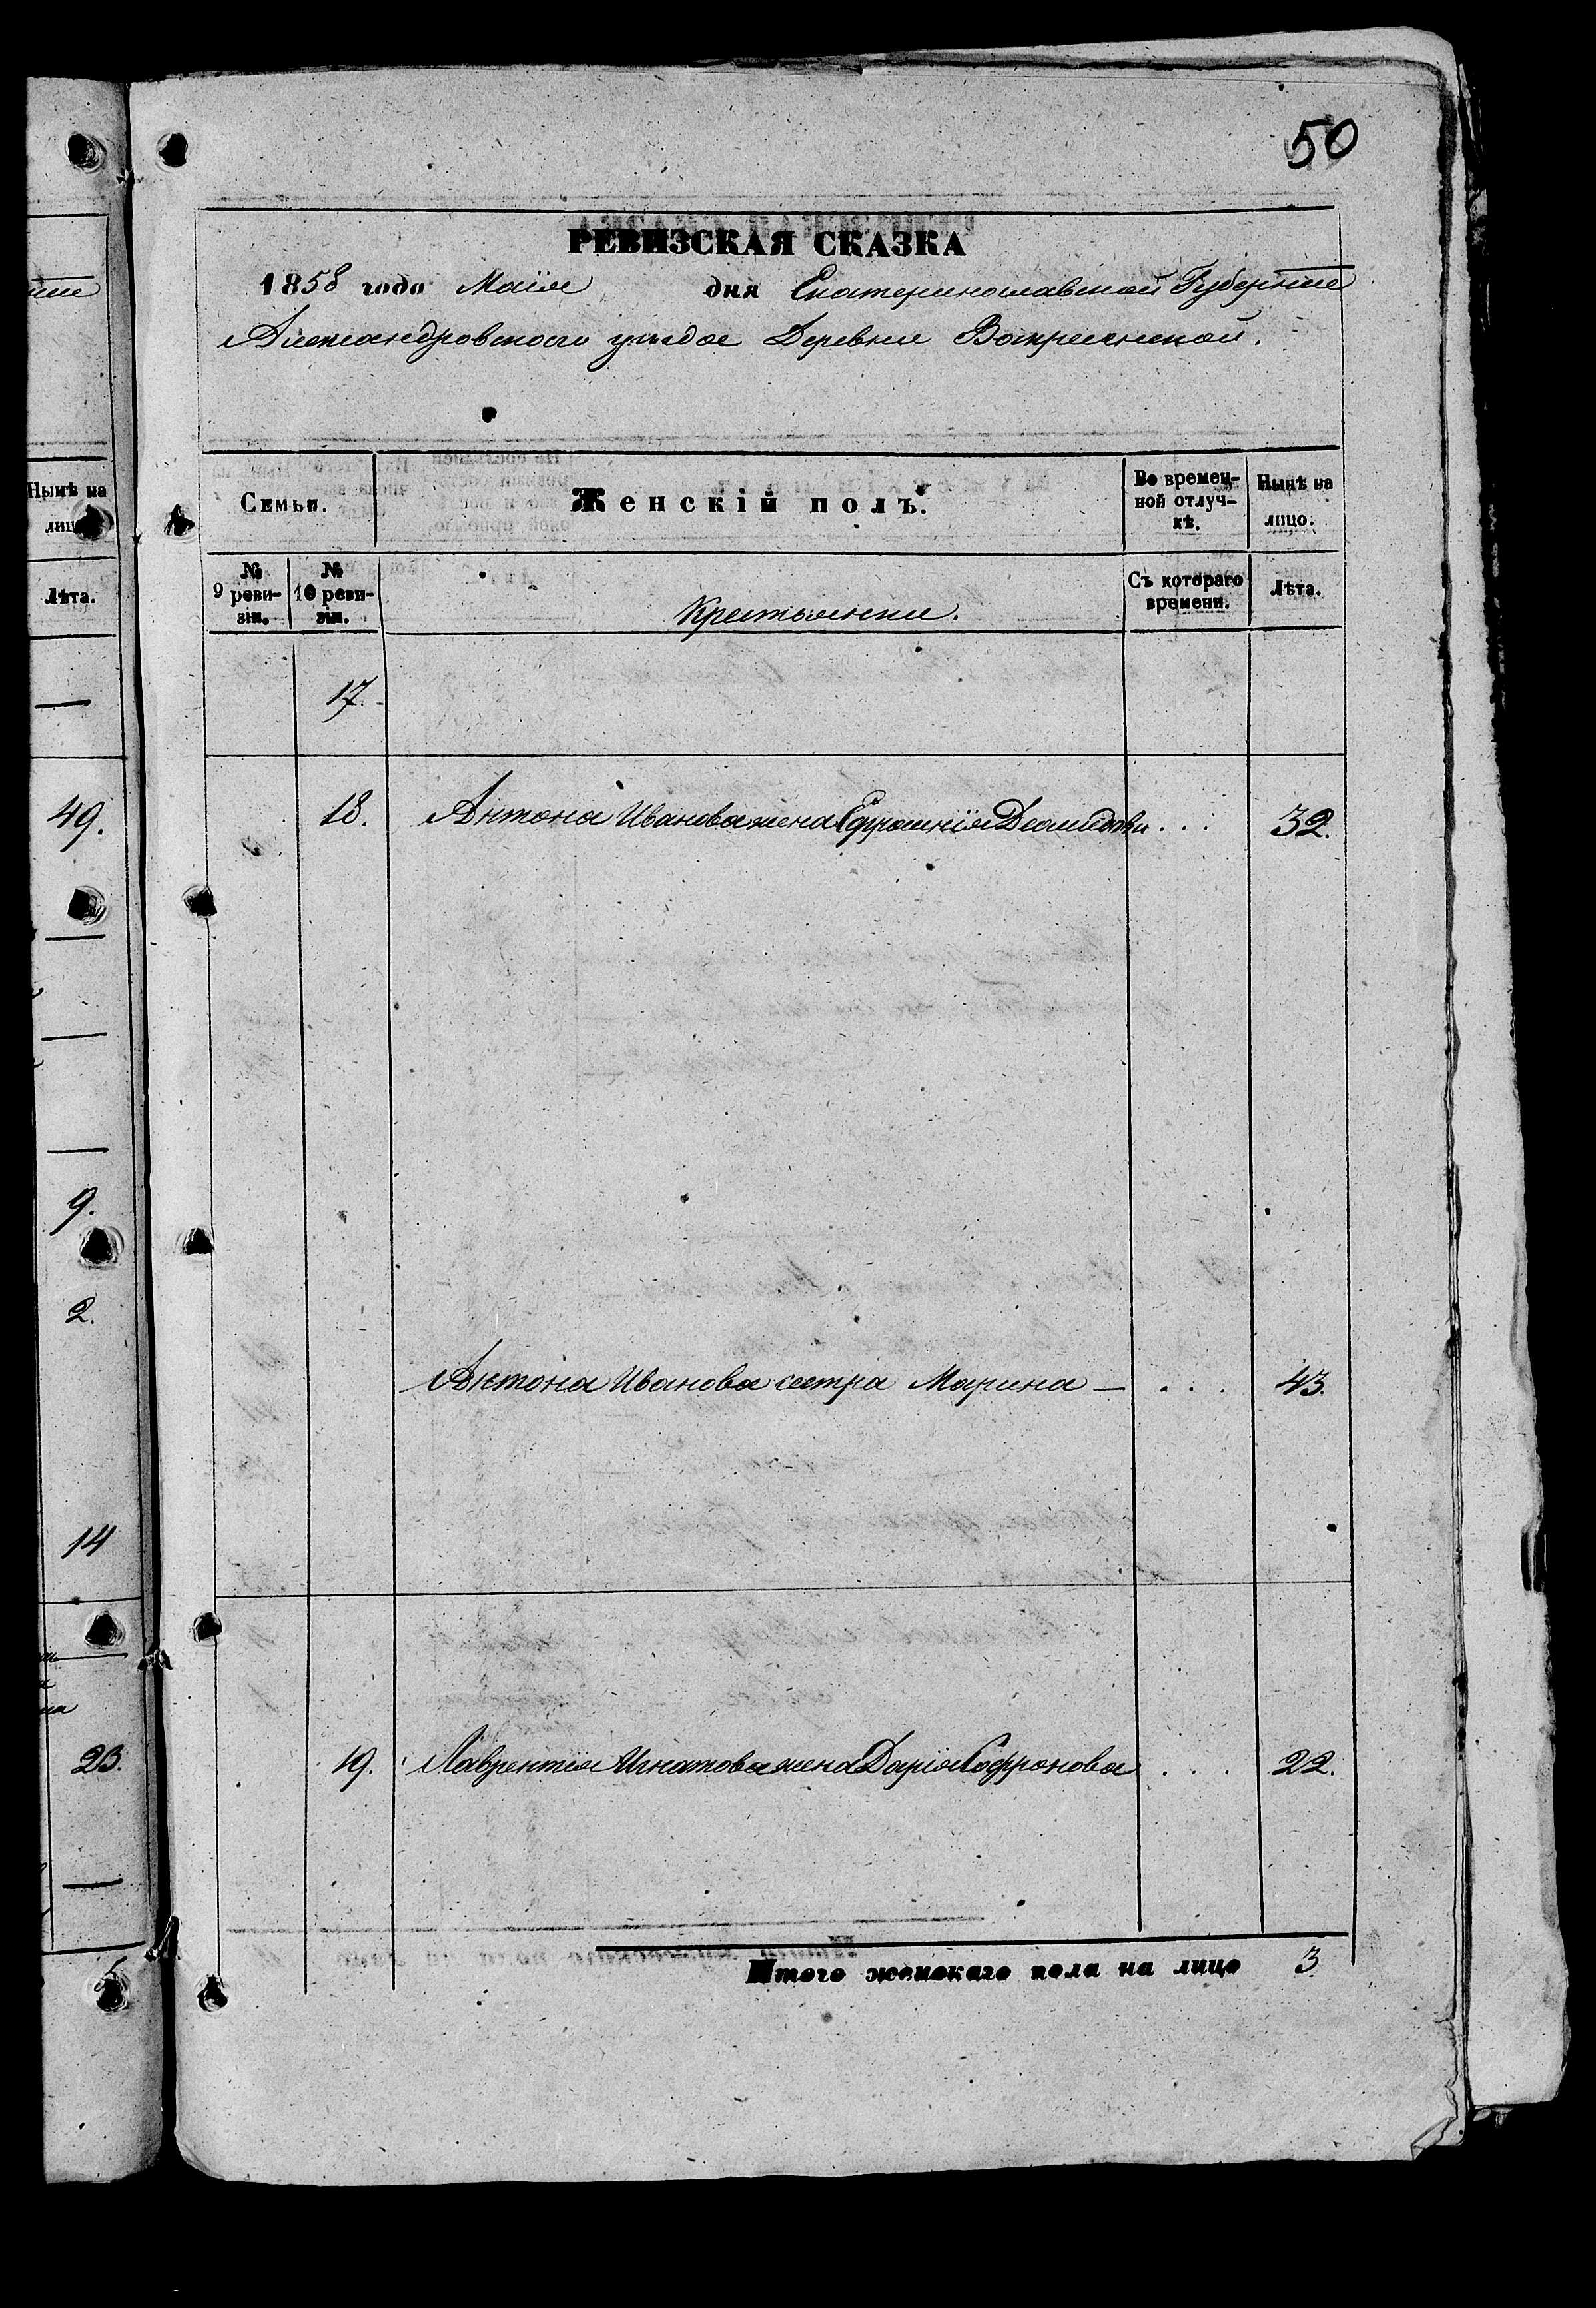 50
РЕВИЗСКАЯ СКАЗКА
1858 года Маія дня Екатеринославской Губерніи
Александровского уѣзда Деревни Воскресенской.
Семьи.
Женскій полъ.
Во времен-
ной отлуч-
кѣ.
Нынѣ на
лицо.
№
9 реви-
зіи.
№
10 реви-
зіи.
Крестьянки.
Съ котораго
времени.
Лѣта.
17.
18. Антона Иванова жена Ефросинія Демидова . . . 32.
Антона Иванова сестра Марина — . . . 43.
19. Лаврентія Игнатова жена Дарія Софронова . . . 22.
Итого женскаго пола на лицо 3.
Нынѣ на
лицо
Лѣта.
49.
9.
2.
14
23.
5